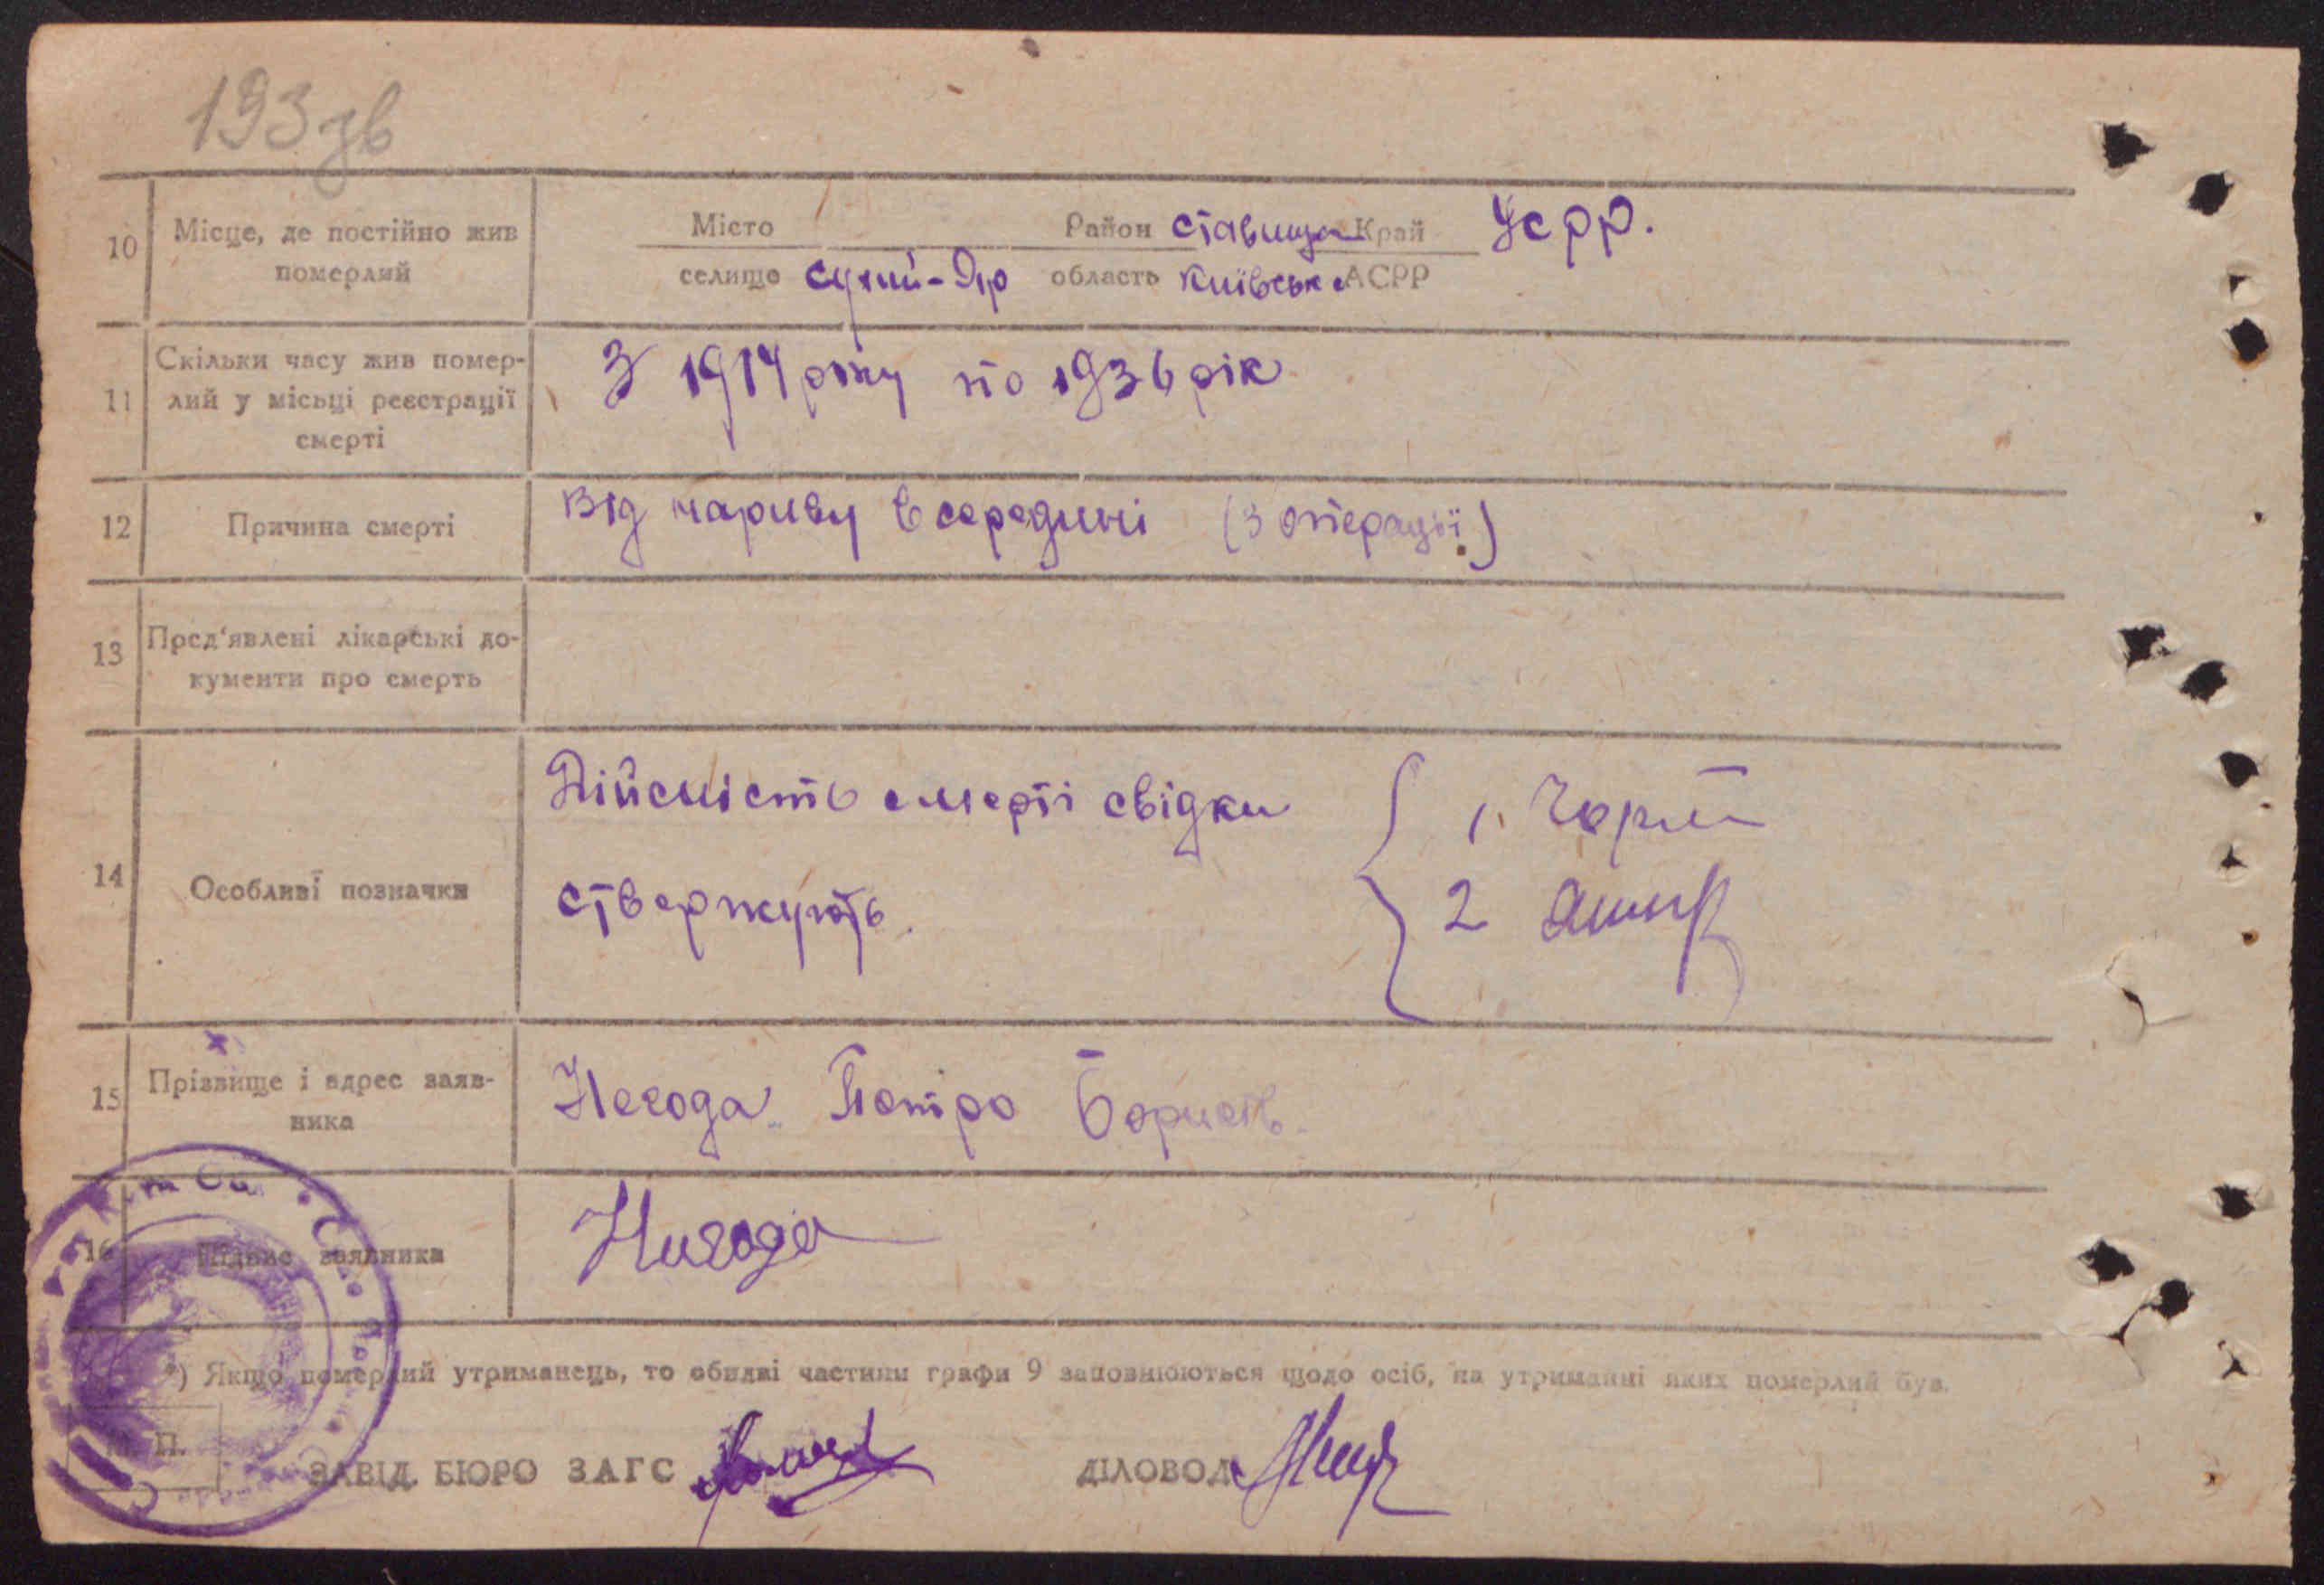 193 зв
10 Місце, де постійно жив Місто Район Ставище Край УСРР.
померлий селище Сухий-Яр область Київськ АСРР
Скільки часу жив помер-
11 лий у місьці реєстрації З 1914 року по 1936 рік
смерті
12 Причина смерті Від нариву всередині (з операції)
13 Пред'явлені лікарські до-
кументи про смерть
Дійсність смерті свідки 1.
14 Особливі позначки ствержують. 2
15 Прізвище і адрес заяв- Негода Петро Борисів.
ника
16 Підпис заявника Нигода
*) Якщо померлий утриманець, то обидві частини графи 9 заповнюються щодо осіб, на утриманні яких померлий був.
М. П.
ЗАВІД. БЮРО ЗАГС ДІЛОВОД